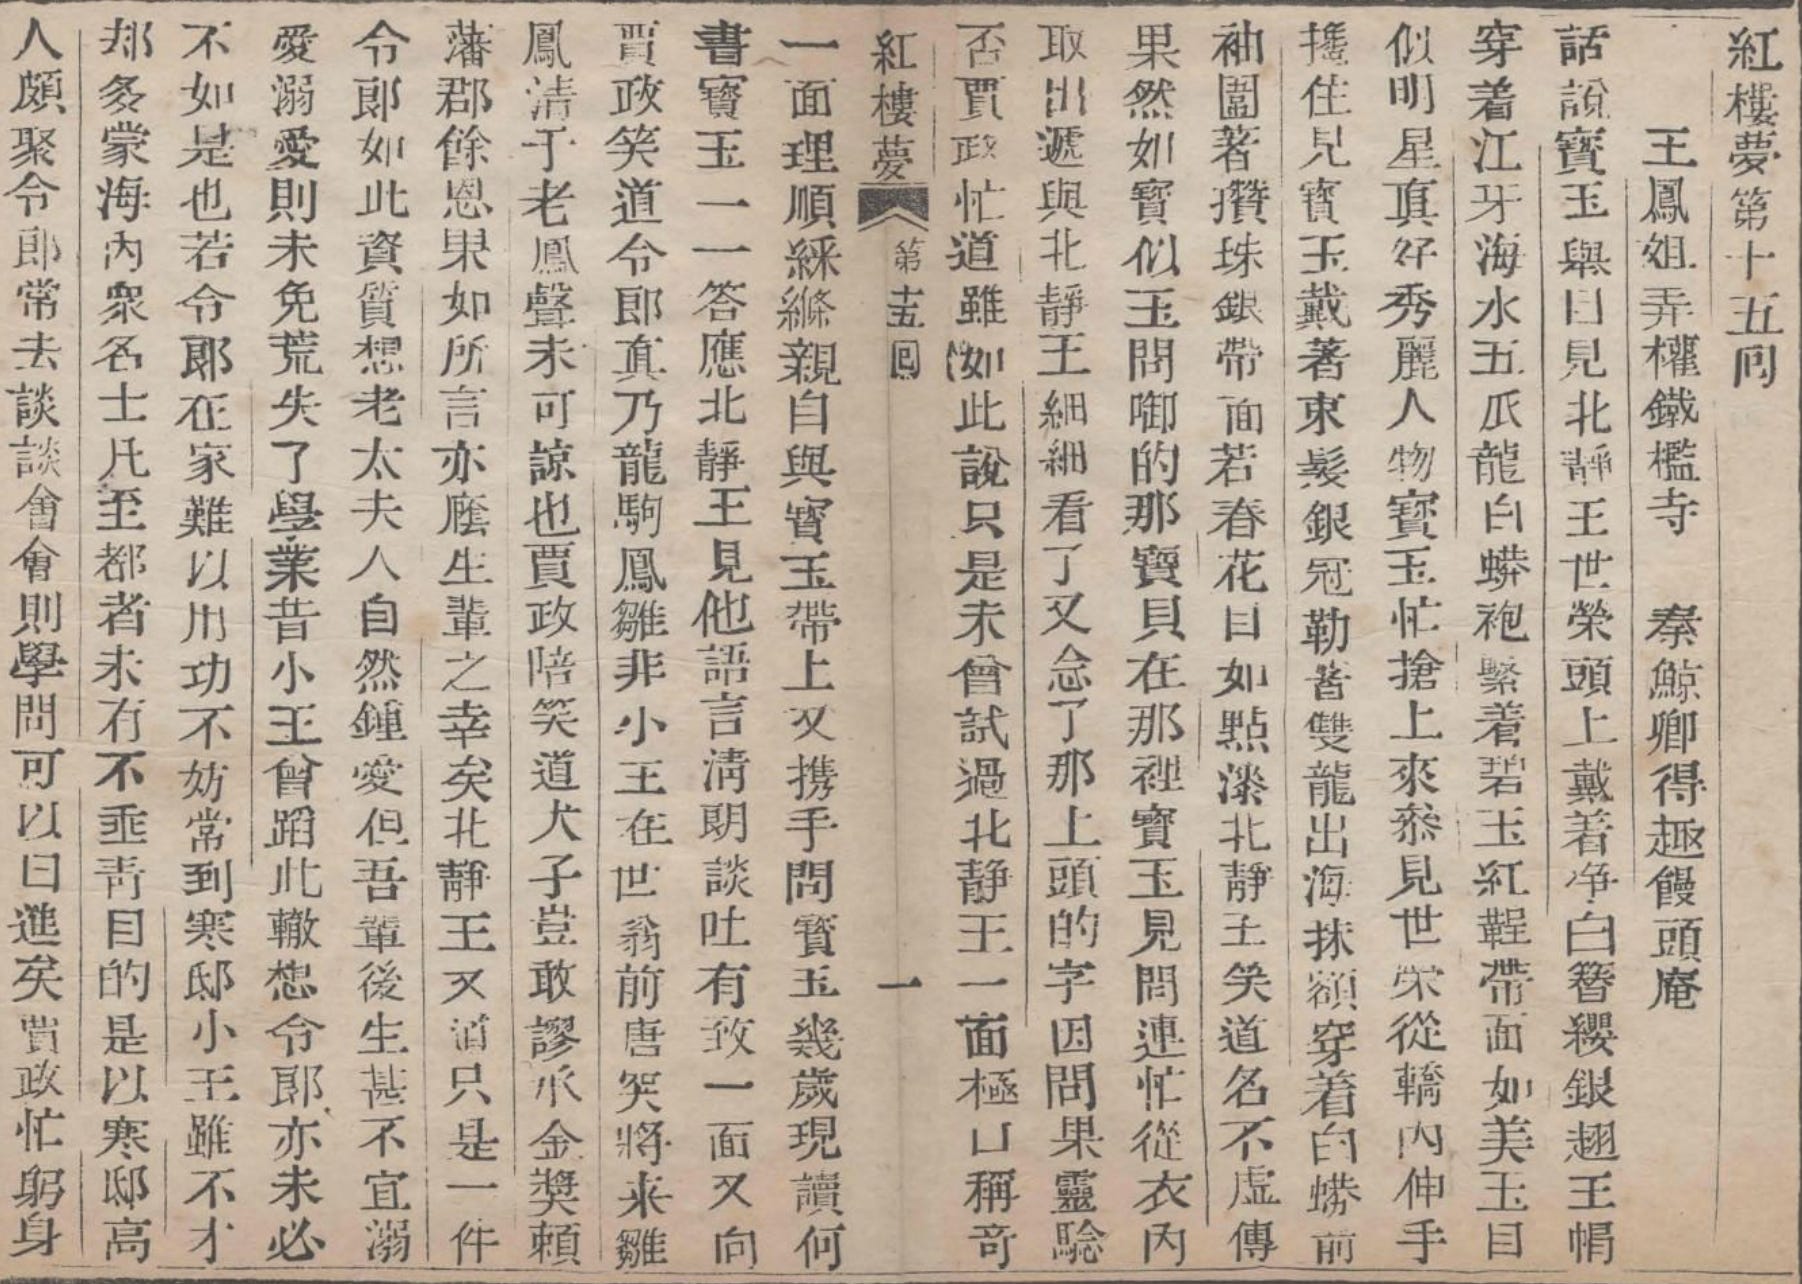 紅樓夢第十五囘
王鳳姐弄權鐵檻寺　秦鯨卿得趣饅頭庵
話說寳玉舉目見北靜王世榮頭上戴着净白簪纓銀翅王帽
穿着江牙海水五爪龍白蟒袍繫着碧玉紅鞓帶面如美玉目
似明星眞好秀麗人物寳玉忙搶上來叅見世榮從轎內伸手
攙住見寳玉戴著束髮銀冠勒著雙龍出海抹額穿着白蟒箭
袖圍著攢珠銀帶面若春花目如點漆北靜王笑道名不虛傳
果然如寳似玉問啣的那寶貝在那裡寳玉見問連忙從衣內
取出遞與北靜王細細看了又念了那上頭的字因問果靈驗
否賈政忙道雖如此說只是未曾試過北静王一面極口稱竒
紅樓夢　第十五囘　一
一面理順綵縧親自與寳玉帶上又携手問寳玉幾歲現讀何
書寳玉一一答應北靜王見他語言淸朗談吐有致一面又向
賈政笑道令郎眞乃龍駒鳳雛非小王在世翁前唐突將来雛
鳳淸于老鳳聲未可諒也賈政陪笑道犬子豈敢謬承金奬賴
藩郡餘恩果如所言亦廕生輩之幸矣北靜王又道只是一件
令郎如此資質想老太夫人自然鍾愛但吾輩後生甚不宜溺
愛溺愛則未免荒失了學業昔小王曾蹈此轍想令郎亦未必
不如是也若令郎在家難以用功不妨常到寒邸小王雖不才
却多蒙海內衆名士凡至都者未有不垂靑目的是以寒邸高
人頗聚令郎常去談談會會則學問可以日進矣賈政忙躬身